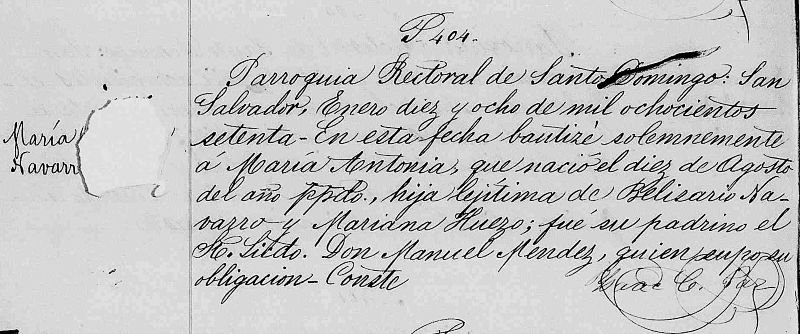 P 404.
Parroquia Rectoral de Santo Domingo: San
Salvador, Enero diez y ocho de mil ochocientos
setenta - En esta fecha bautizé solemnemente
á Maria Antonia, que nació el diez de Agosto
del año ppdo., hija lejítima de Belisario Na-
varro y Mariana Huezo; fué su padrino el
Don Manuel Mendez, quien supo su
obligacion - Conste
María
Navarr